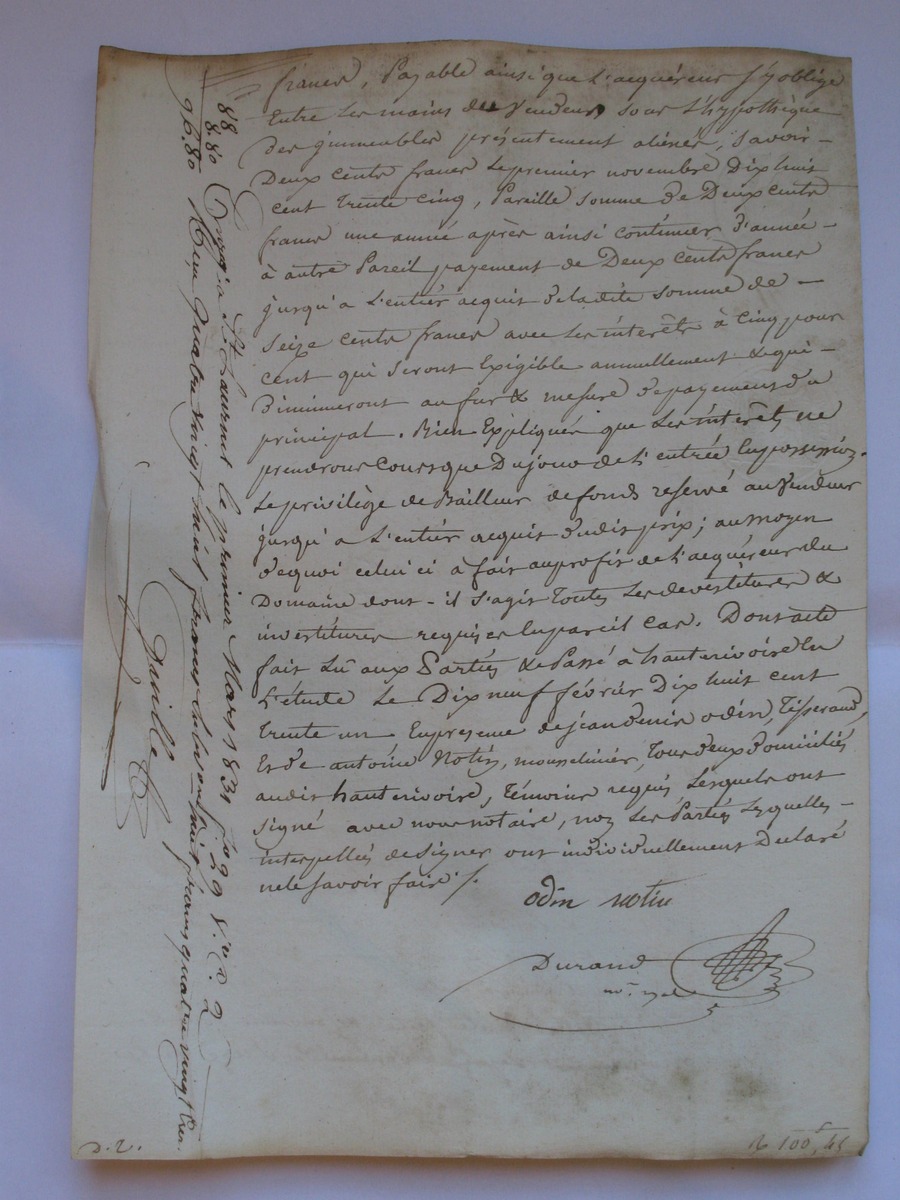 francs, Payable ainsi que L'acquéreur s'y oblige
Entre Les mains du Vendeur sous L'hypothèque
Des immeubles présentement aliénés, Savoir
Deux cents francs Le premier novembre Dix huit
cent trente cinq, Pareille somme de Deux cents
francs une année après ainsi continuer d'année
à autre Pareil payement de Deux cents francs
jusqu'a L'entier acquit de ladite somme de
Seize cents francs avec Les intérêts à Cinq pour
cent qui seront Exigible annuellement & qui
Diminueront au fur & mesure de payement du
principal. Bien Expliqués que Les intérêts ne
prendrons Cours que Du jour de L'entrée En possession.
Le privilège de Bailleur de fonds reservé au Vendeur
jusqu'a L'entier acquit dudit prix; au moyen
de quoi celui ci à fait au profit de L'acquéreur du
Domaine dont il s'agit Toutes Les devestitures &
investitures requises En pareil cas. Dont acte
fait Lu aux Parties & Passé à hauterivoire En
L'étude Le Dix neuf février Dix huit cent
trente un En présence de jean denis odin, Tisserand,
Et de antoine Notin, mousselinier, Tous deux domiciliés
audit hauterivoire, Témoins requis Lesquels ont
signé avec nous notaire, non Les Parties Lesquelles
interpellées de signer ont individuellement Declaré
ne le savoir faire /.
odin notin
Durand
88
8.80
96.80
St Laurent le premier Mars 1831 fo 29
quatre vingt huit francs
huit francs quatre vingt
D. 2.